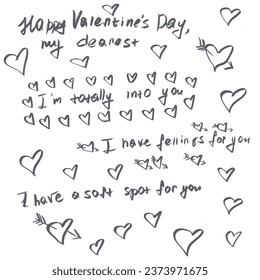 Happy Valentine's Day,
my dearest
I'm totally into you
I have fellings for you
I have a soft spot for you
shutterstock.com · 2373971675